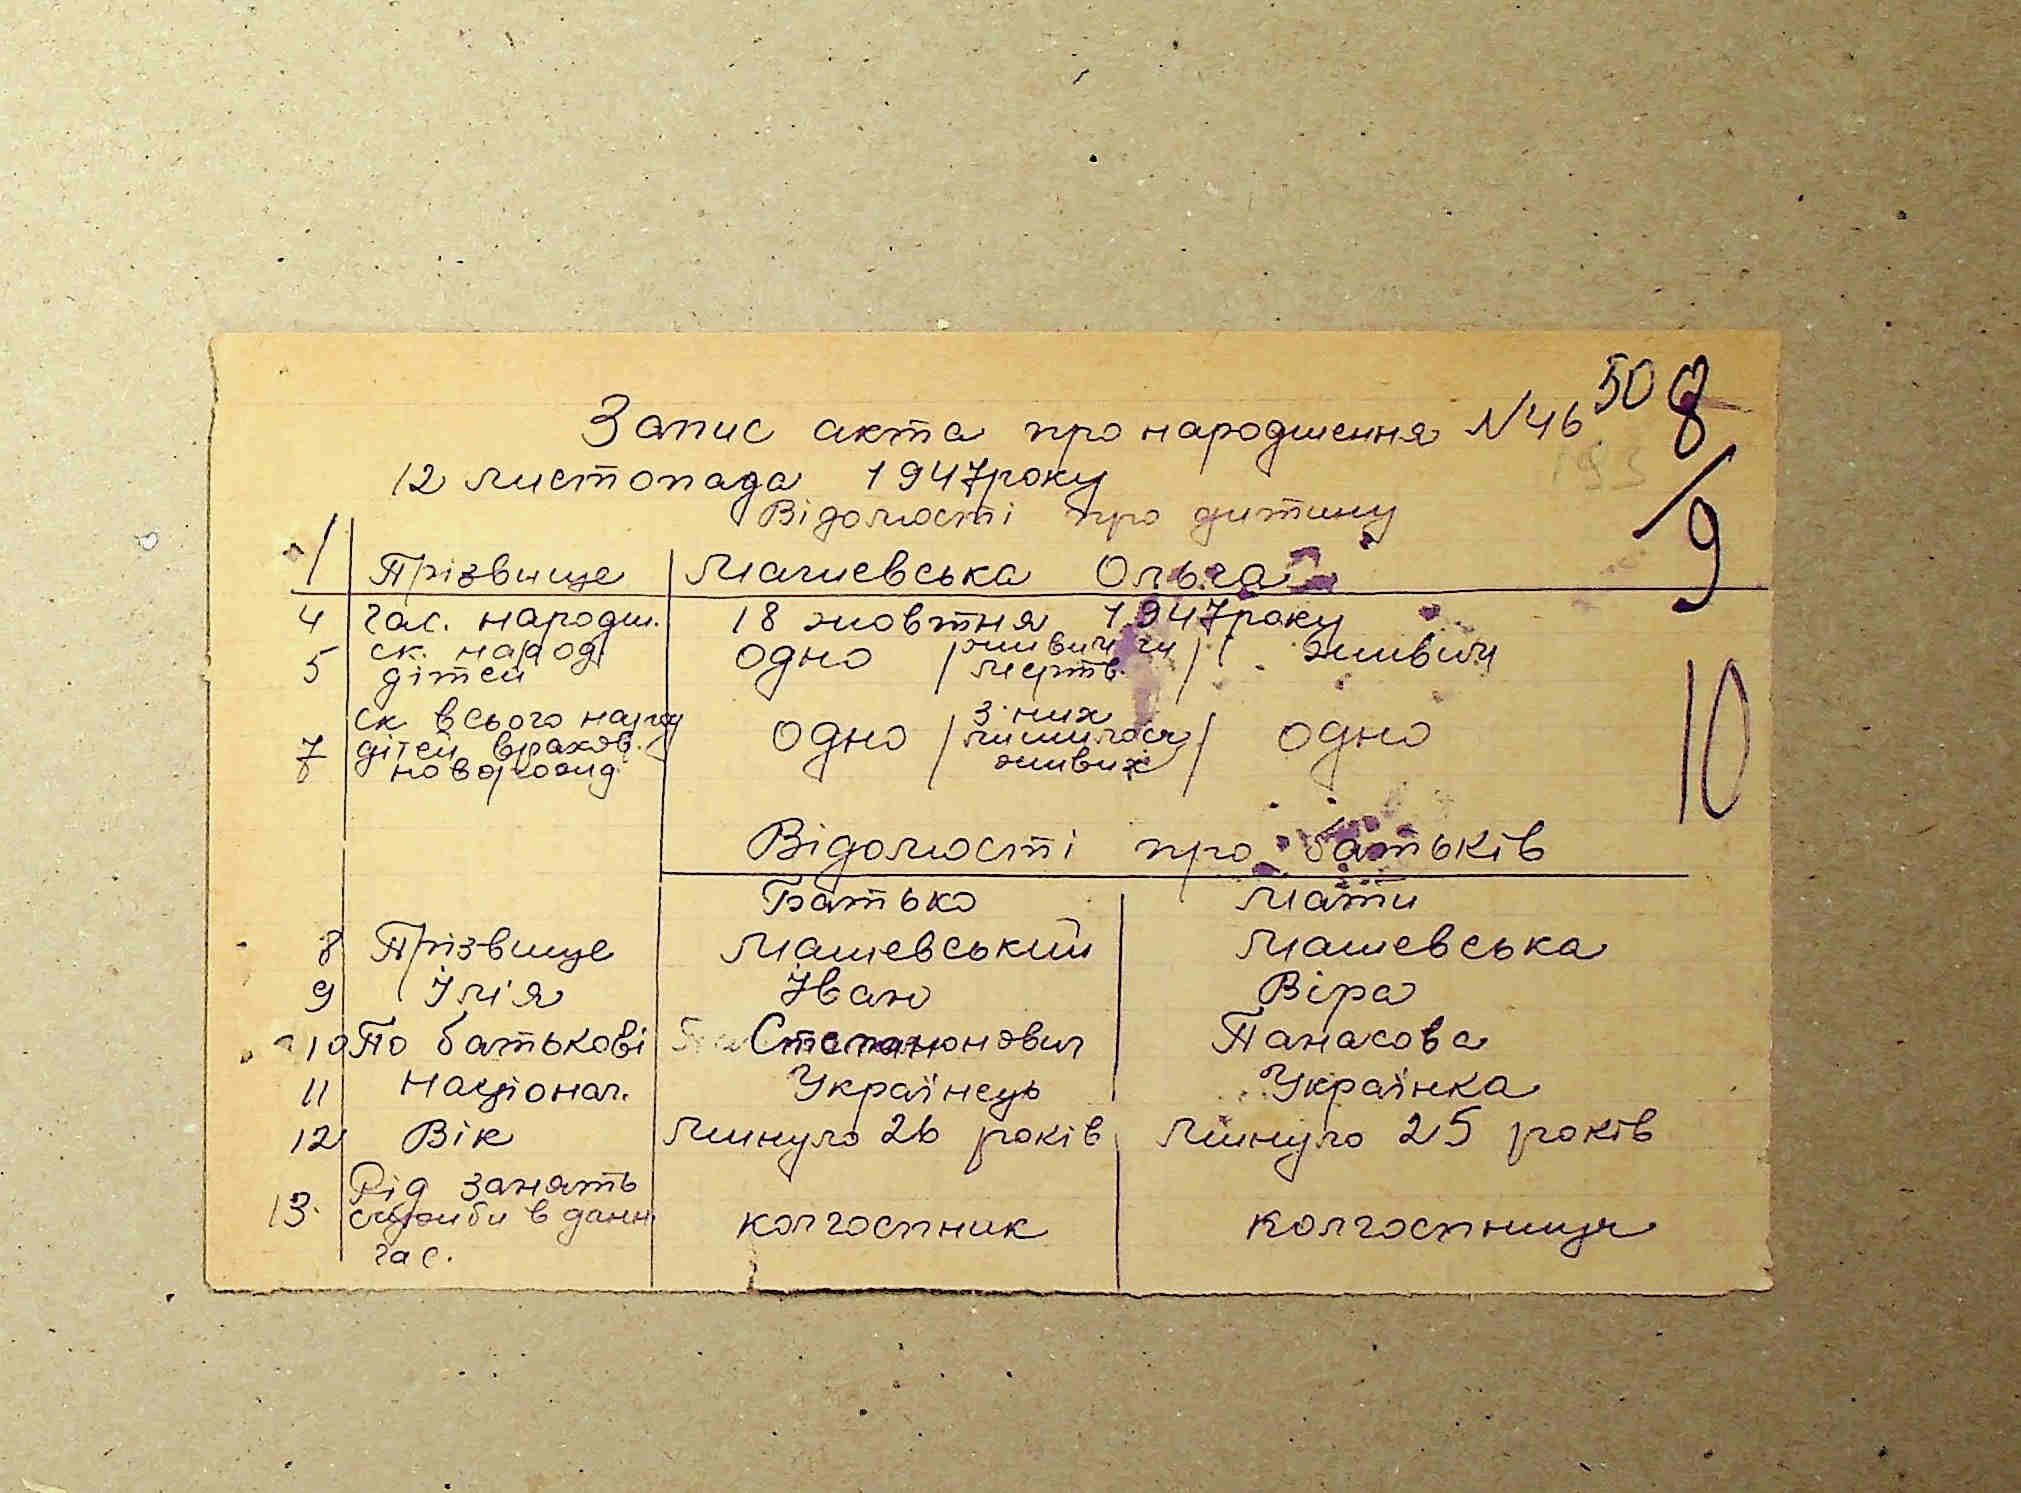 50 8
Запис акта про народження N 46
193
12 листопада 1947 року
Відомості про дитину
9
1 Прізвище Машевська Ольга
4 час. народж. 18 жовтня 1947 року
5 ск. народ. дітей одно / живим чи мертв. / живим
7 ск всього народ дітей врахов. новорожд. одно / з них лишилося живих / одно
10
Відомості про батьків
Батько Мати
8 Прізвище Машевський Машевська
9 Ім'я Іван Віра
10 По батькові Панасова
11 Націонал. Українець Українка
12 Вік Минуло 26 років Минуло 25 років
13. Рід занять служби в данн. час. колгоспник колгоспниця